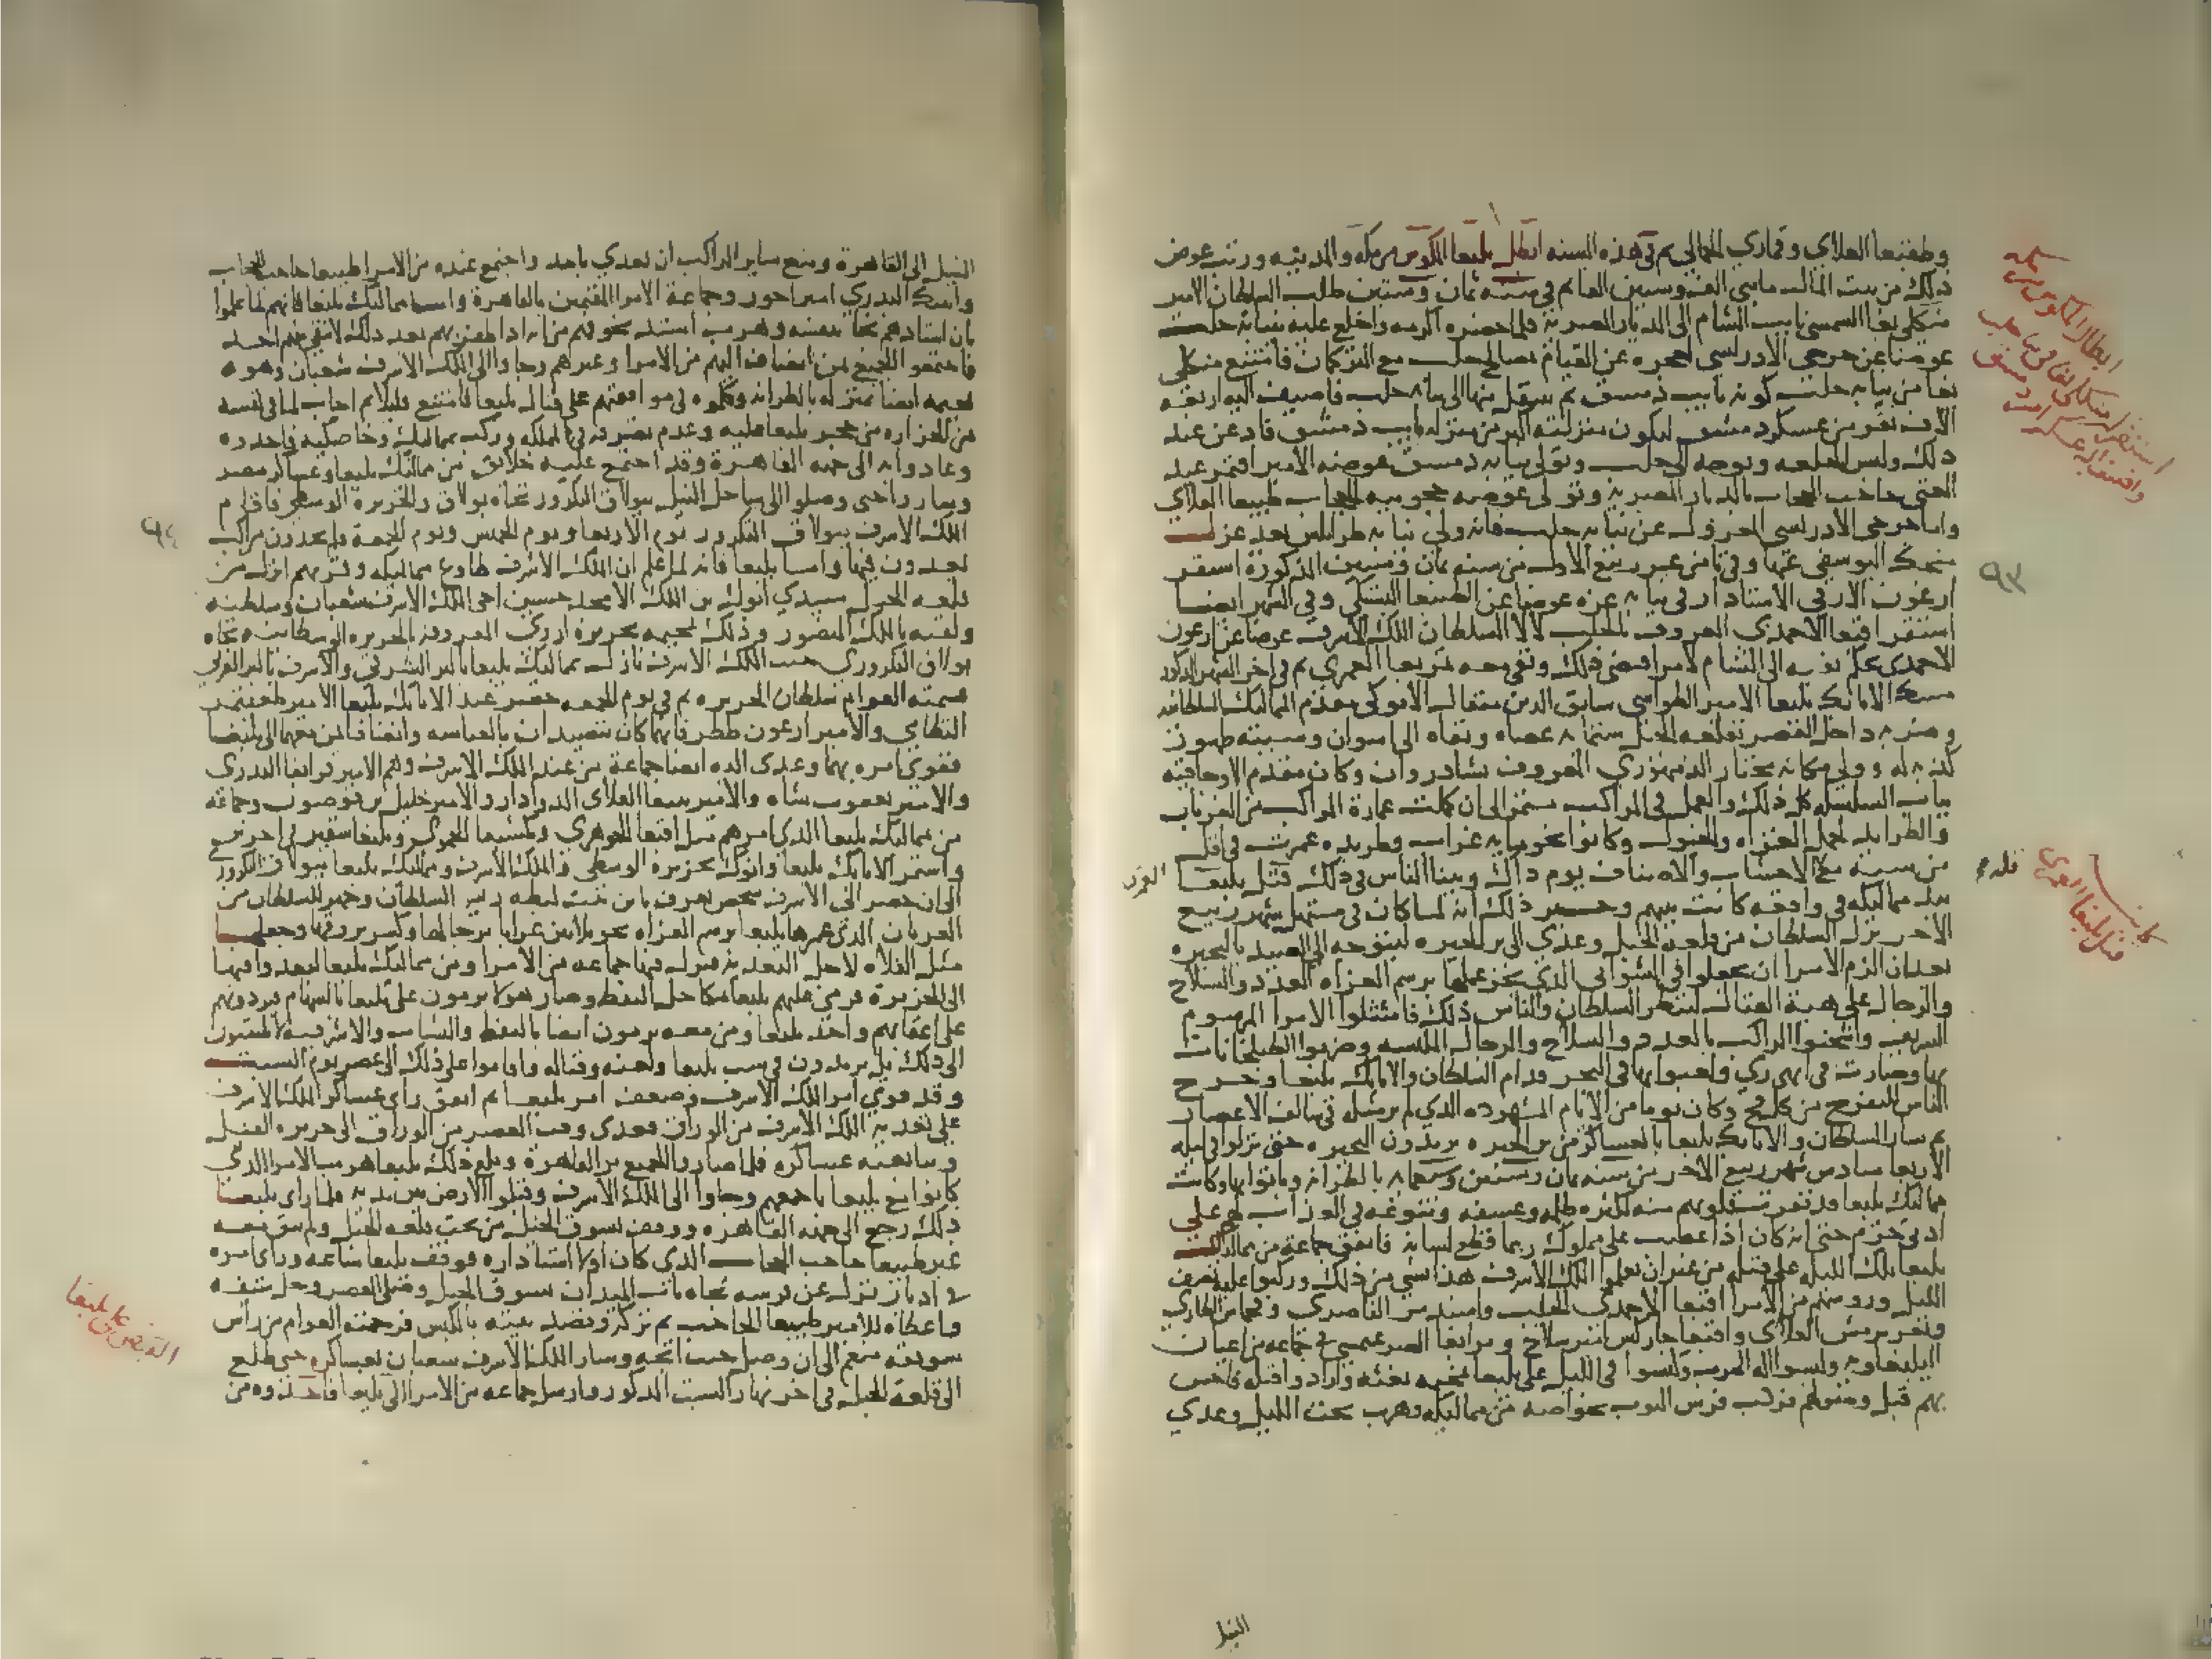 وطغيتمر العلاي وقماري الجمالي ثم في هذه السنه ابطل يلبغا المكوس من مكه والمدينه ورتب عوض
ذلك من بيت المال مايتي الف وستين الفا ثم في سنه ثمان وستين طلب السلطان الامير
منكلي بغا الشمسي نايب الشام الى الديار المصرية فلما حضره اكرمه واخلع عليه بنيابة حلب
عوضا عن جرجي الادريسي لعجزه عن القيام بمصالح حلب مع التركمان فامتنع منكلي
بغا من نيابه حلب كونه نايب دمشق ثم ينتقل منها الى نيابه حلب فاضيف اليه اربعه
الاف نفر من عسكر دمشق ليكون منزلته اكبر من منزله نايب دمشق فاذعن عند
ذلك ولبس الخلعه وتوجه الى حلب وتولى نيابه دمشق عوضه الامير اقتمر عبد
الغني حاجب الحجاب بالديار المصرية وتولى عوضه حجوبيه الحجاب طيبغا العلاي
واما جرجي الادريسي المعزول عن نيابه حلب فانه ولي نيابه طرابلس بعد عزل
منجك اليوسفي عنها وفي ثامن عشر ربيع الاول من سنه ثمان وستين المذكورة استقر
ارغون الازقي الاستادار في نيابه غزه عوضا عن الطنبغا البشتكي وفي الشهر ايضا
استقر اقبغا الاحمدي المعروف بالجلب لالا السلطان الملك الاشرف عوضا عن ارغون
الاحمدي بحكم نفيه الى الشام لامر اقتضى ذلك ونفي معه تمربغا العمري ثم في اخر الشهر المذكور
مسك الاتابك يلبغا الامير الطواشي سابق الدين مثقال الانوكي مقدم المماليك السلطانيه
وضربه داخل القصر بقلعه الجبل ستمايه عصاه ونفاه الى اسوان وسببه ظهور
كذبه له وولي مكانه مختار الدمنهوري المعروف بشاذروان وكان مقدم الاوجاقيه
بباب السلسله كل ذلك والعمل في المراكب مستمر الى ان كملت عمارة المراكب من الغربان
والطرايد لحمل الغزاه والخيول وكانوا نحو مايه غراب وطريده عمرت في اقل
من سنه مع الاخشاب والاصناف يوم ذاك وبينا الناس في ذلك قتل يلبغا
بيد مماليكه في واقعه كانت بينهم وخبر ذلك انه لما كان في مستهل شهر ربيع
الاخر نزل السلطان من قلعه الجبل وعدى الى بر الجيزه ليتوجه الى الصيد بالبحيره
بعد ان الزم الامرا ان يجعلوا في الشواني الذي نجز عملها برسم الغزاه العدد والسلاح
والرجال على هيئة القتال لينظر السلطان والناس ذلك فامتثلوا الامرا المرسوم
الشريف واشحنوا المراكب بالعدد والسلاح والرجال الملبسه وضربوا الطبلخانات
بها وصارت في ابهى زي ولعبوا بها في البحر قدام السلطان والاتابك يلبغا وخرج
الناس للتفرج من كل فج وكان يوما من الايام المشهوده الذي لم ير مثله في سالف الاعصار
ثم سار السلطان والاتابك يلبغا بالعساكر من بر الجيزه يريدون البحيره حتى نزلوا في ليله
الاربعا سادس شهر ربيع الاخر من سنه ثمان وستين وسبعمايه بالطرانه وباتوا بها وكانت
مماليك يلبغا قد نفرت قلوبهم منه لكثره ظلمه وعسفه وتنوعه في العذاب لهم على
ادنى جرم حتى انه كان اذا غضب على مملوك ربما قطع لسانه فاتفق جماعة من مماليك
يلبغا تلك الليله على قتله من غير ان يعلموا الملك الاشرف هذا بشي من ذلك وركبوا عليه نصف
الليل ورووسهم من الامرا اقبغا الاحمدي الجلب واسندمر الناصري وقجماس الطازي
وتغري برمش العلاي واقبغا جاركس امير سلاح وقرابغا الصرغتمشي في جماعه من اعيان
اليلبغاويه ولبسوا اله الحرب وكبسوا في الليل على يلبغا بخيمه بغته وارادوا قتله فاحس
بهم قبل وصولهم فركب فرس النوبه بخواصه من مماليكه وهرب تحت الليل وعدى
النيل
ابطال المكوس من مكه
استقرار منكلي بغا في نيابه حلب
واضيف اليه عسكر من دمشق
٩٣
كاينه
قتل يلبغا العمري
النيل الى القاهرة ومنع ساير المراكب ان يعدي باحد واجتمع عنده من الامرا طيبغا حاجب الحجاب
وايبك البدري امير اخور وجماعة الامرا المقيمين بالقاهرة واما مماليك يلبغا فانهم لما علموا
بان استادهم نجا بنفسه وهرب اشتد تخوفهم من انه اذا ظفر بهم بعد ذلك لا يبقي منهم احد
فاجتمعوا الجميع بمن انضاف اليهم من الامرا وغيرهم وجاوا الى الملك الاشرف شعبان وهو
بخيمه ايضا بمنزله بالطرانه وكلموه في موافقتهم على قتال يلبغا فامتنع قليلا ثم اجاب لما في نفسه
من الحزازه من حجر يلبغا عليه وعدم تصرفه في المملكه وركب بمماليكه وخاصكيته فاخذوه
وعادوا به الى جهه القاهرة وقد اجتمع عليه خلايق من مماليك يلبغا وعساكر مصر
وساروا حتى وصلوا الى ساحل النيل ببولاق التكرور تجاه بولاق والجزيره الوسطى فاقام
الملك الاشرف ببولاق التكرور يوم الاربعا ويوم الخميس ويوم الجمعة فلم يجدون مراكب
يعدون فيها واما يلبغا فانه لما علم ان الملك الاشرف طاوع مماليكه وقربهم انزل من
قلعه الجبل سيدي انوك بن الملك الامجد حسين اخي الملك الاشرف شعبان وسلطنه
ولقبه بالملك المنصور وذلك بمخيمه بجزيرة اروى المعروفه بالجزيره الوسطانيه تجاه
بولاق التكروري حيث الملك الاشرف نازل بمماليك يلبغا بالبر الشرقي والاشرف بالبر الغربي
فسمته العوام سلطان الجزيره ثم في يوم الجمعه حضر عند الاتابك يلبغا الامير طغيتمر
النظامي والامير ارغون ططر فانهما كانا يتصيدان بالعباسه وانضافا بمن معهما الى يلبغا
فقوي امره بهما وعدى اليه ايضا جماعة من عند الملك الاشرف وهم الامير قرابغا البدري
والامير يعقوب شاه والامير بيبغا العلاي الدوادار والامير خليل بن قوصون وجماعه
من مماليك يلبغا الذي امرهم مثل اقبغا الجوهري وكمشبغا الحموي ويلبغا شقير في اخرين
واستمر الاتابك يلبغا وانوك بجزيرة الوسطى والملك الاشرف ومماليك يلبغا ببولاق التكرور
الى ان حضر الى الاشرف شخص يعرف بابن بنت لبطه ريس السلطان وجهز للسلطان من
الغربان الذي عمرها يلبغا برسم الغزاه نحو ثلاثين غرابا برجالها وكسر بروقها وجعلها
مثل الفلاه لاجل التعديه فنزل فيها جماعه من الامرا ومن مماليك يلبغا ليعدوا فيها
الى الجزيرة فرمى عليهم يلبغا بمكاحل النفط وصار هولا يرمون على يلبغا بالسهام فيردونهم
على اعقابهم واخذ يلبغا ومن معه يرمون ايضا بالنفط والنشاب والاشرفيه لا يلتفتون
الى ذلك بل يزيدون في سب يلبغا ولعنه وقتاله واقاموا على ذلك الى عصر يوم السبت
وقد قوي امر الملك الاشرف وضعف امر يلبغا ثم اتفق راي عساكر الملك الاشرف
على تعديه الملك الاشرف من الوراق فعدى وقت العصر من الوراق الى جزيره الفيل
وتتابعته عساكره فلما صاروا الجميع ببر القاهرة وبلغ ذلك يلبغا هرب الامرا الذي
كانوا مع يلبغا باجمعهم وجاوا الى الملك الاشرف وقبلوا الارض بين يديه فلما راى يلبغا
ذلك رجع الى جهه القاهره ووقف بسوق الخيل من تحت قلعه الجبل ولم يبق معه
غير طيبغا حاجب الحجاب الذي كان اولا استاداره فوقف يلبغا ساعه وراى امره
في ادبار نزل عن فرسه تجاه باب الميدان بسوق الخيل وصلى العصر وحل سيفه
واعطاه للامير طيبغا الحاجب ثم نزل وقصد بيته بالكبش فرجمته العوام من راس
سويقه منعم الى ان وصل حيث اتجه وسار الملك الاشرف شعبان بعساكره حتى طلع
الى قلعة الجبل في اخر نهار السبت المذكور وارسل جماعه من الامرا الى يلبغا فاخذوه من
٩٤
القبض على يلبغا